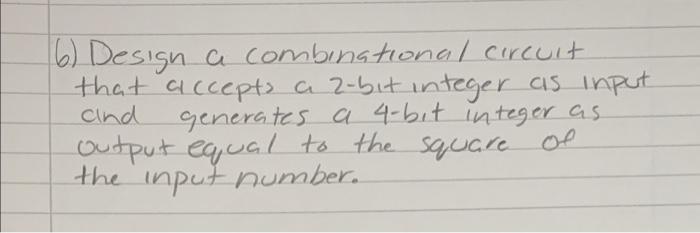 6) Design a combinational circuit
that accepts a 2-bit integer as input
and generates a 4-bit integer as
output equal to the square of
the input number.